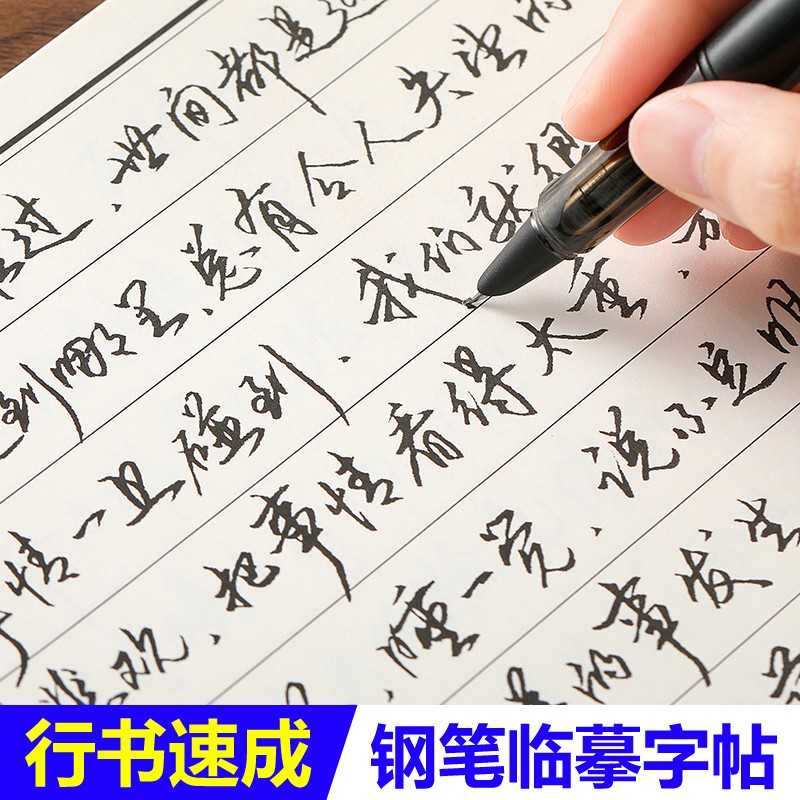 过、世间都是这
到哪里、总有令人失望的
情一旦碰到、我们就
欢、把事情看得太重、
睡一觉、说不定明
的事发生
行书速成 钢笔临摹字帖